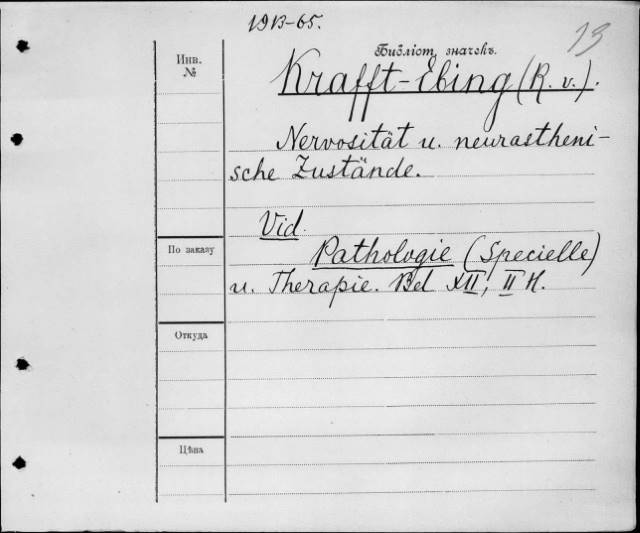 1913-65.
13
Библіот. значекъ.
Инв.
№
Krafft-Ebing (R. v.).
Nervosität u. neurastheni-
sche Zustände.
Vid.
По заказу
Pathologie (Specielle)
u. Therapie. Bd XII, II H.
Откуда
Цѣна